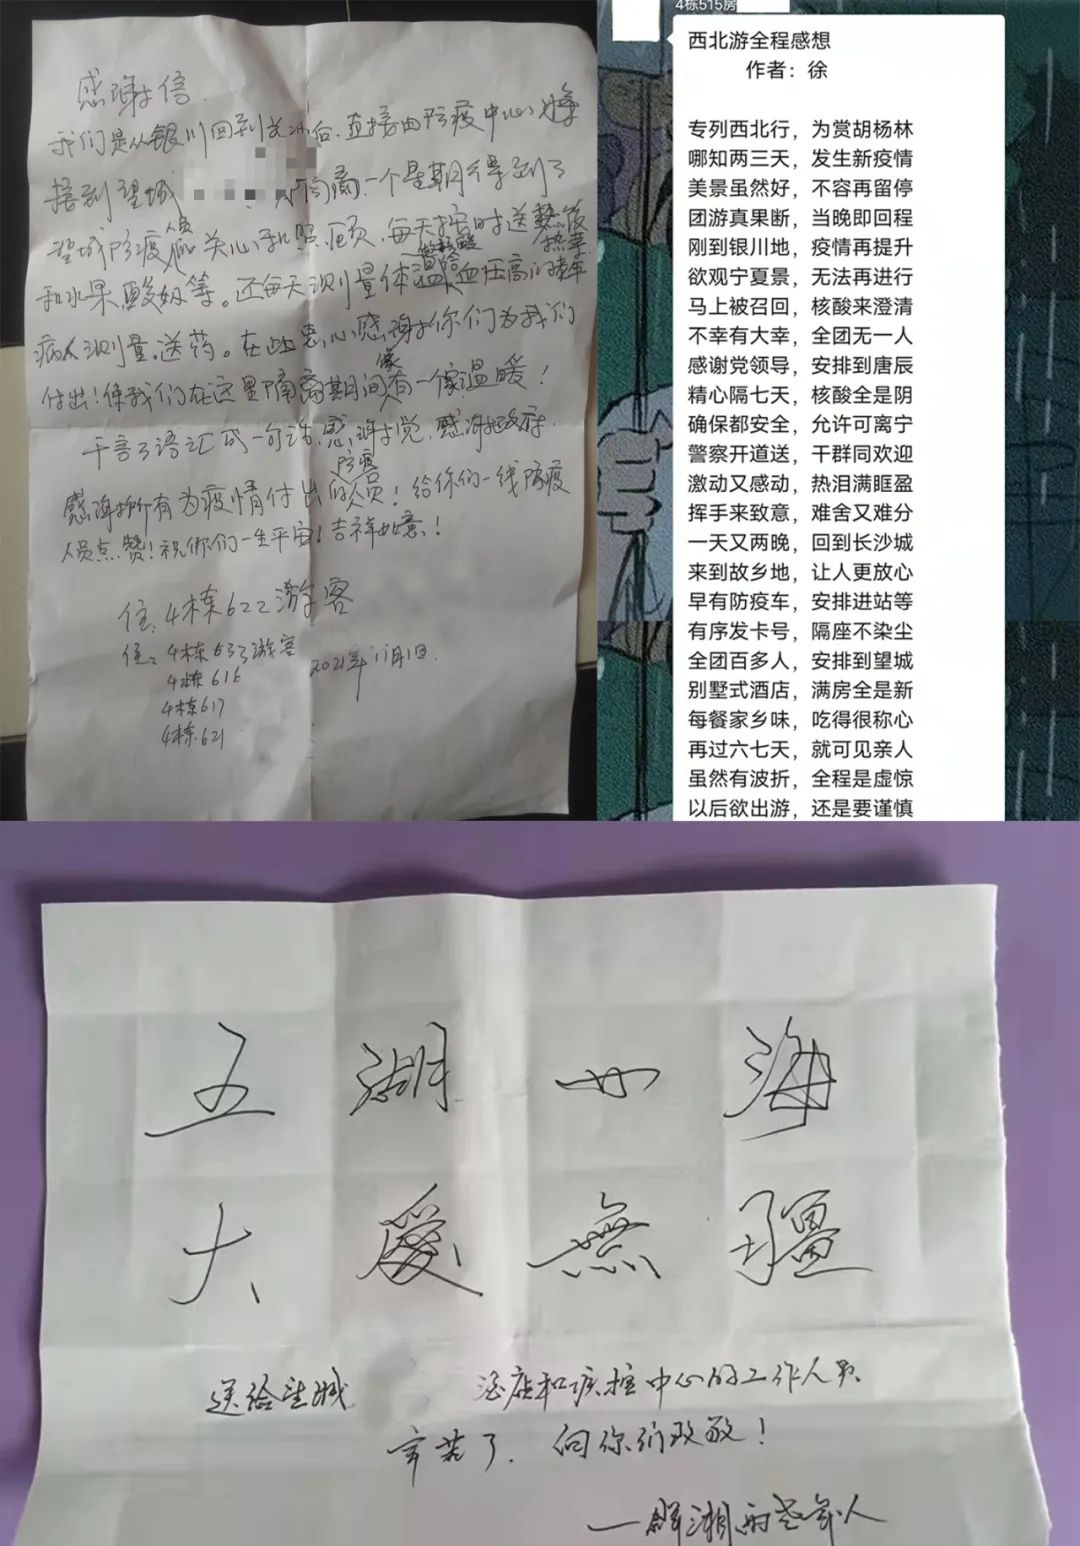 感谢信
我们是从银川回到长沙后.直接由防疫中心对象
接到望城 隔离.一个星期得到了
望城防疫人员 关心和照顾.每天按时送热饭
热菜
做核酸
和水果,酸奶等。还每天测量体温,给血压高的老年
病人测量.送药。在此衷心感谢你们为我们
付出!使我们在这里隔离期间像有一家温暖!
千言万语汇成一句话,感谢党,感谢政府.
感谢所有为疫情付出的防疫人员!给你们一线防疫
人员点赞!祝你们一生平安!吉祥如意!
住:4栋622游客
住:4栋633游客
4栋616
4栋617
4栋621
2021年11月1日.
4栋515房
西北游全程感想
作者:徐
专列西北行,为赏胡杨林
哪知两三天,发生新疫情
美景虽然好,不容再留停
团游真果断,当晚即回程
刚到银川地,疫情再提升
欲观宁夏景,无法再进行
马上被召回,核酸来澄清
不幸有大幸,全团无一人
感谢党领导,安排到唐辰
精心隔七天,核酸全是阴
确保都安全,允许可离宁
警察开道送,干群同欢迎
激动又感动,热泪满眶盈
挥手来致意,难舍又难分
一天又两晚,回到长沙城
来到故乡地,让人更放心
早有防疫车,安排进站等
有序发卡号,隔座不染尘
全团百多人,安排到望城
别墅式酒店,满房全是新
每餐家乡味,吃得很称心
再过六七天,就可见亲人
虽然有波折,全程是虚惊
以后欲出游,还是要谨慎
五湖四海
大爱無疆
送给望城 酒店和疾控中心的工作人员
辛苦了.向你们致敬!
一群湖南老年人